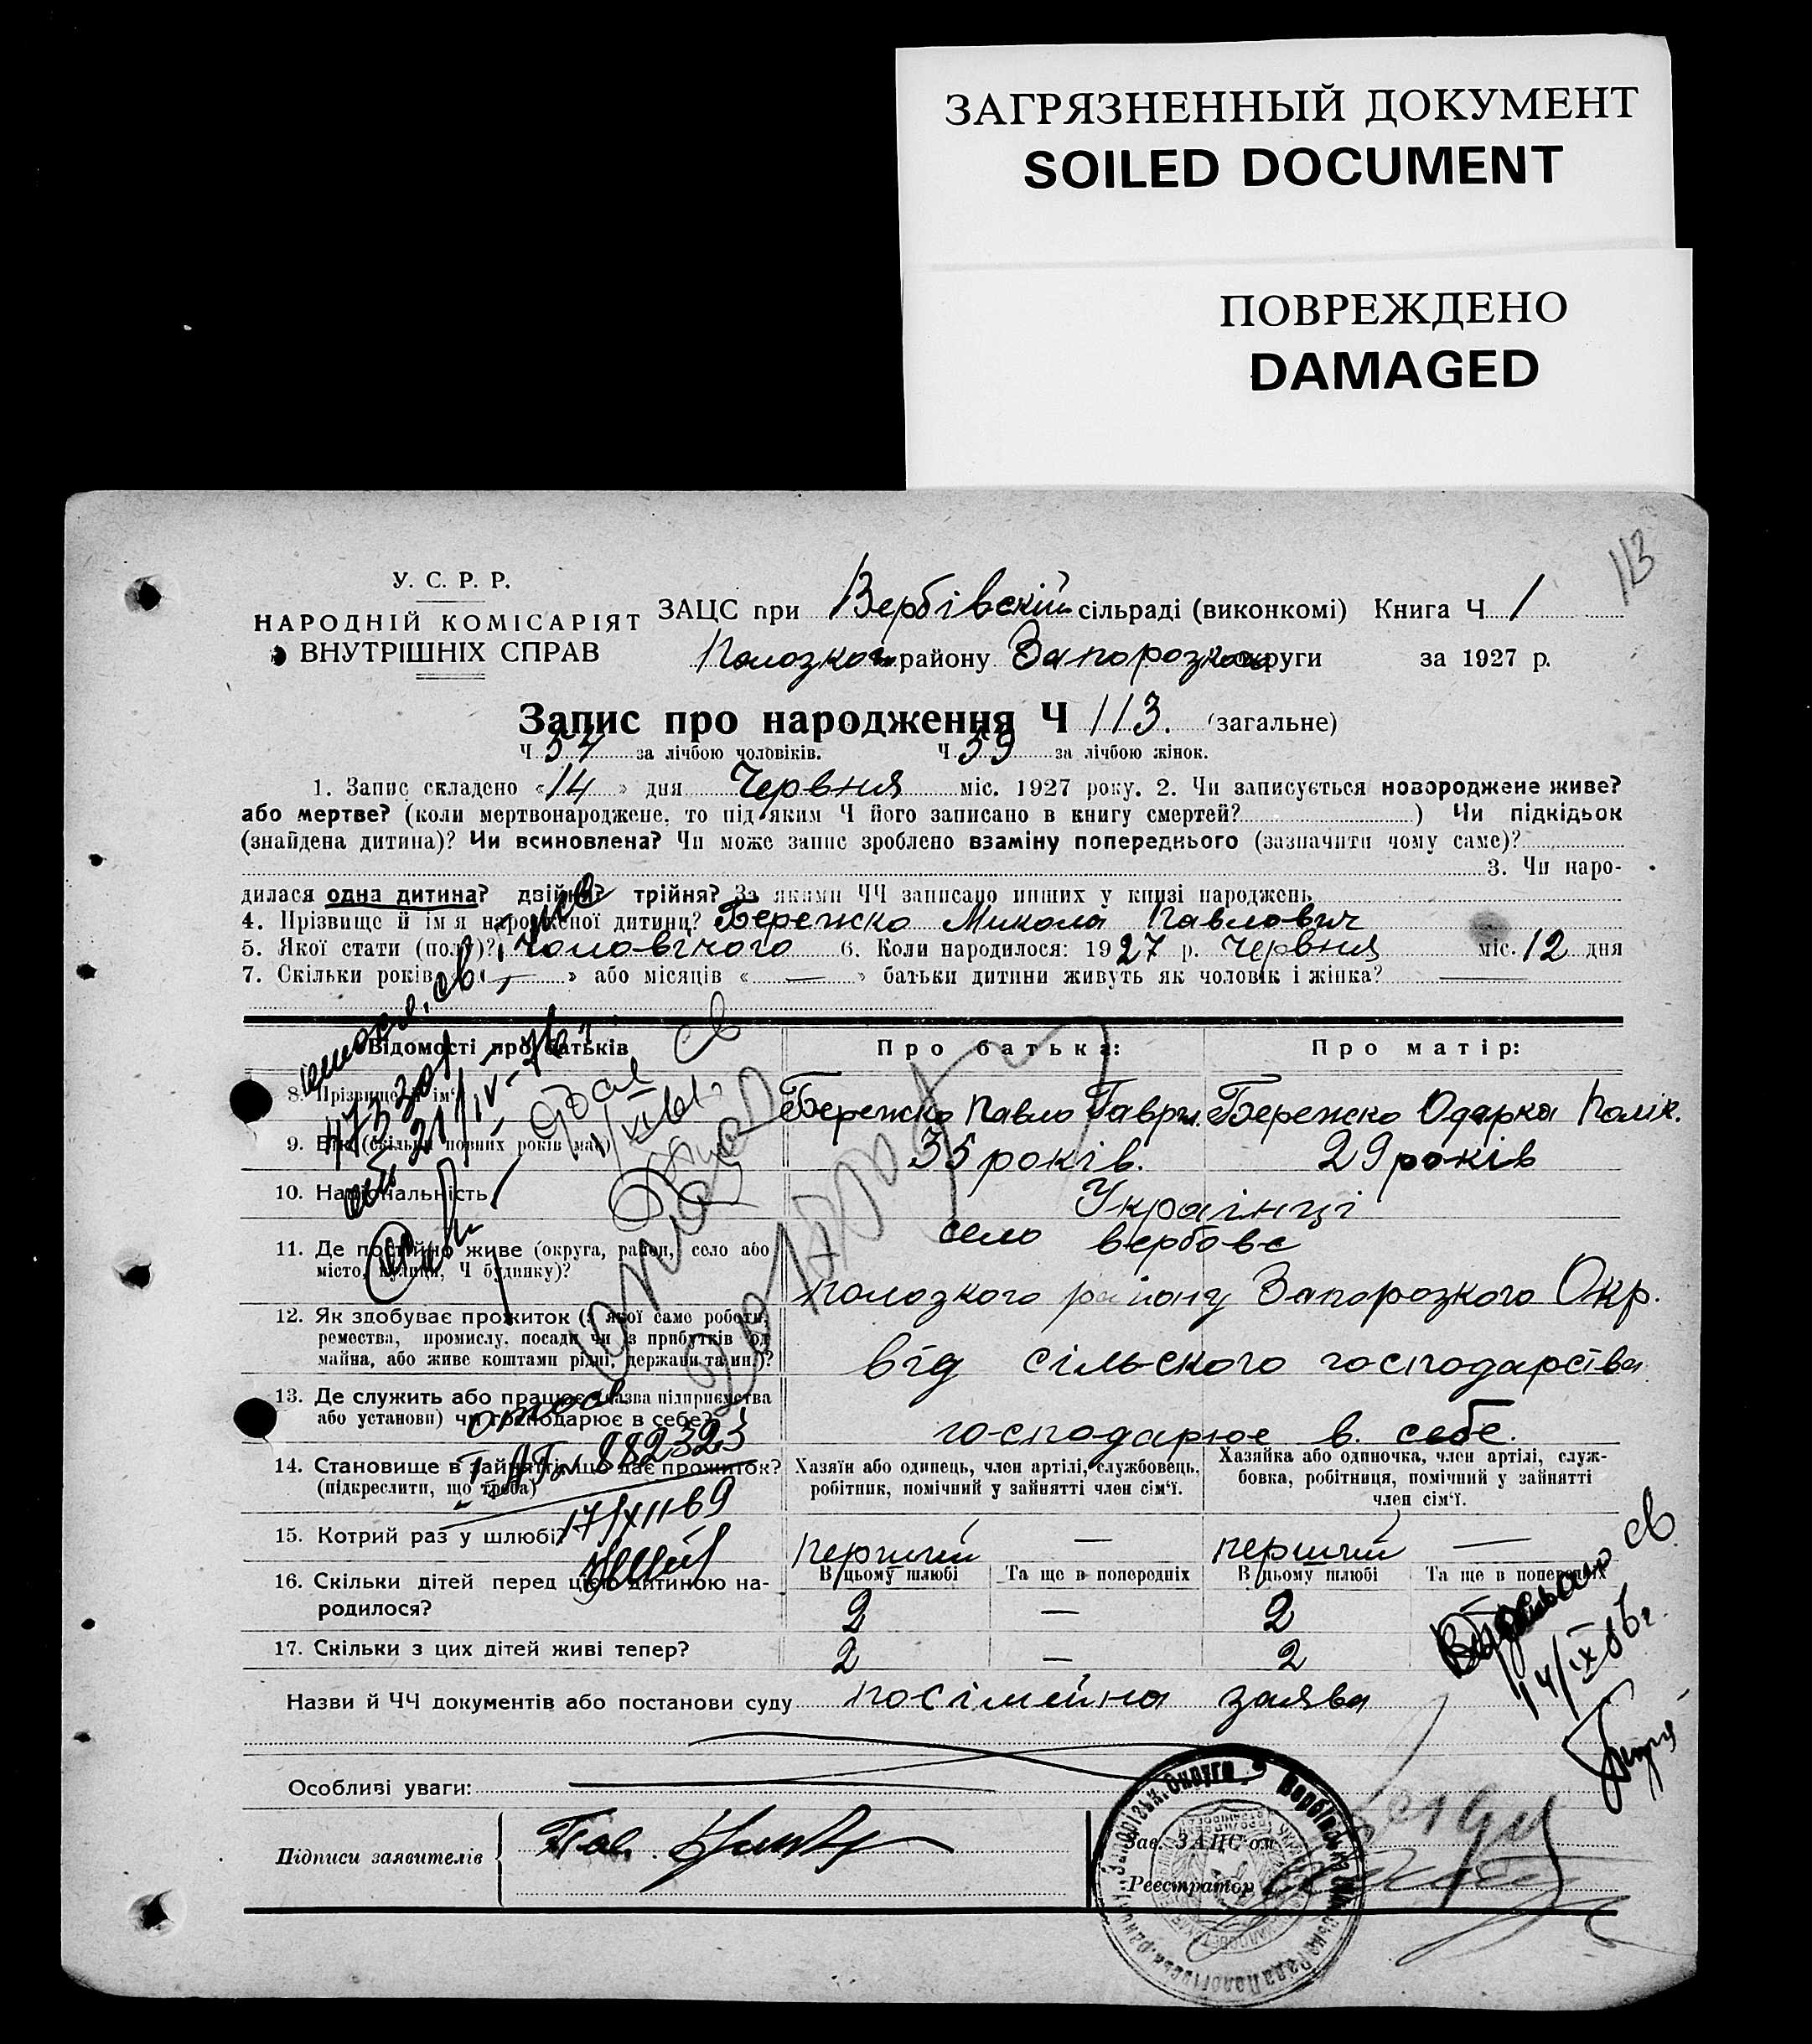 ЗАГРЯЗНЕННЫЙ ДОКУМЕНТ
SOILED DOCUMENT
ПОВРЕЖДЕНО
DAMAGED
113
У. С. Р. Р.
НАРОДНІЙ КОМІСАРІЯТ
ВНУТРІШНІХ СПРАВ
ЗАЦС при Вербівскій сільраді (виконкомі) Книга Ч 1
району округи за 1927 р.
Запис про народження Ч 113. (загальне)
Ч 54 за лічбою чоловіків. Ч 59 за лічбою жінок.
1. Запис складено «14» дня Червня міс. 1927 року. 2. Чи записується новороджене живе?
або мертве? (коли мертвонароджене, то під яким Ч його записано в книгу смертей? ) Чи підкідьок
(знайдена дитина)? Чи всиновлена? Чи може запис зроблено взаміну попереднього (зазначити чому саме)?
3. Чи наро-
дилася одна дитина? двійня? трійня? За якими ЧЧ записано инших у книзі народжень
4. Прізвище й імя народженої дитини? Бережко Микола Павлович
5. Якої стати (полу)? Чоловічого 6. Коли народилося: 1927 р. Червня міс. 12 дня
7. Скільки років « — » або місяців « — » батьки дитини живуть як чоловік і жінка? —
Відомості про батьків Про батька: Про матір:
8. Прізвище й ім'я Бережко Павло Гаврил. Бережко Одарка Полік.
9. Вік (скільки повних років має) 35 років. 29 років
10. Національність Українці
11. Де постійно живе (округа, район, село або село Вербове
місто, вулиця, Ч будинку)? Полозкого району Запорозкого Окр.
12. Як здобуває прожиток (з якої само роботи,
ремества, промислу, посади чи з прибутків од
майна, або живе коштами рідні, держави та ин.)? від сільского господарства
13. Де служить або працює (назва підприємства
або установи) чи господарює в себе? господарює в себе.
14. Становище в зайнятті, що дає прожиток? Хазяїн або одинець, член артілі, службовець, Хазяйка або одиночка, член артілі, служ-
(підкреслити, що треба) робітник, помічний у зайнятті член сім'ї. бовка, робітниця, помічний у зайнятті
член сім'ї.
882323
17/XII-69
15. Котрий раз у шлюбі? перший — перший —
16. Скільки дітей перед цією дитиною на- В цьому шлюбі Та ще в попередніх В цьому шлюбі Та ще в попередніх
родилося? 2 — 2
17. Скільки з цих дітей живі тепер? 2 — 2
14/IX
Назви й ЧЧ документів або постанови суду посімейна заява
Особливі уваги:
Підписи заявителів
Зав. ЗАЦС'ом
Реєстратор